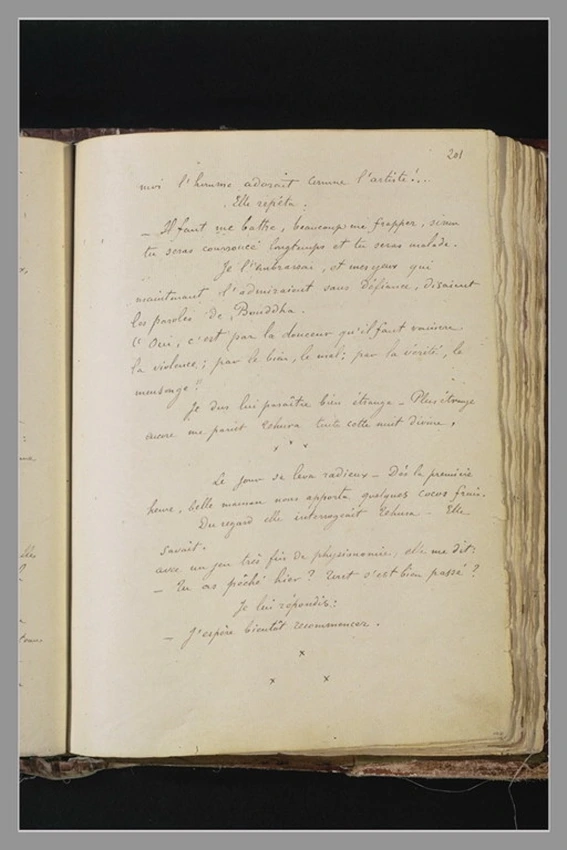 201
moi l'homme adorait comme l'artiste!...
Elle répéta:
— Il faut me battre, beaucoup me frapper, sinon
tu seras courroucé longtemps et tu seras malade.
Je l'embrassai, et mes yeux qui
maintenant l'admiraient sans défiance, disaient
les paroles de Bouddha.
« Oui, c'est par la douceur qu'il faut vaincre
la violence; par le bien, le mal; par la vérité, le
mensonge"
Je dus lui paraître bien étrange — Plus étrange
encore me parut Tehura toute cette nuit divine,
x x x
Le jour se leva radieux — Dès la première
heure, belle maman nous apporta quelques cocos frais.
Du regard elle interrogeait Tehura — Elle
savait.
avec un jeu très fin de physionomie, elle me dit:
— Tu as pêché hier? Tout s'est bien passé?
Je lui répondis:
— J'espère bientôt recommencer.
x
x x
elles